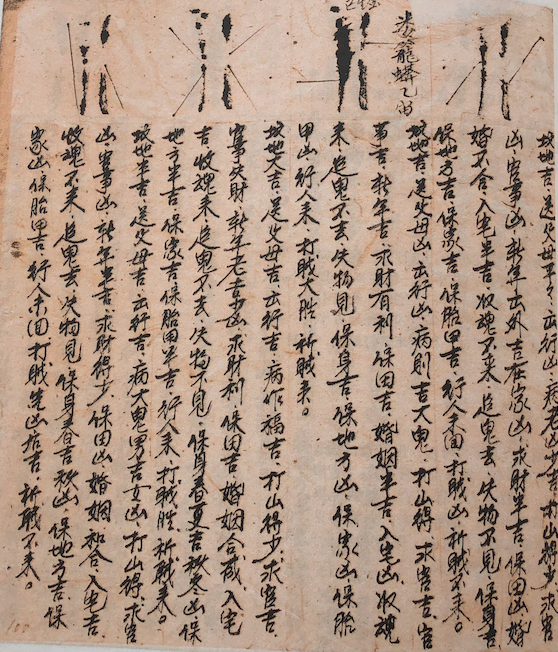 坟地吉·送父母吉·出行凶·病老凶少吉·打山得少·求官
凶·官事凶·新年出外吉在家凶·求財半吉·保田凶·婚
婚不合·入宅半吉·收魂不来·追鬼去·失物不見·保身吉·
保地方吉·保家吉·保胎男吉·行人未回·打賊凶·祈賊不来。
坟地吉·送父母凶·出行凶·病則吉大鬼·打山得·求官吉·官
事吉·新年吉·求財有利·保田吉·婚姻半吉·入宅凶·收魂
来·追鬼不去·失物見·保身吉·保地方凶·保家凶·保胎
甲凶·行人来·打賊大胜·祈賊来。
坟地大吉·送父母吉·出行吉·病作福吉·打山得少·求官吉·
官事失財·新年老吉少凶·求財利·保田吉·婚姻合成·入宅
吉·收魂来·追鬼不去·失物不見·保身春夏吉秋冬凶·保
地方半吉·保家吉·保胎男半吉·行人来·打賊胜·祈賊来。
坟地半吉·送父母吉·出行吉·病大鬼男吉女凶·打山得·求官
凶·官事凶·新年半吉·求財得少·保田凶·婚姻和合·入宅吉·
收魂不来·追鬼去·失物見·保身春吉秋凶·保地方吉·保
家凶·保胎男吉·行人未回·打賊先凶后吉·祈賊不来。